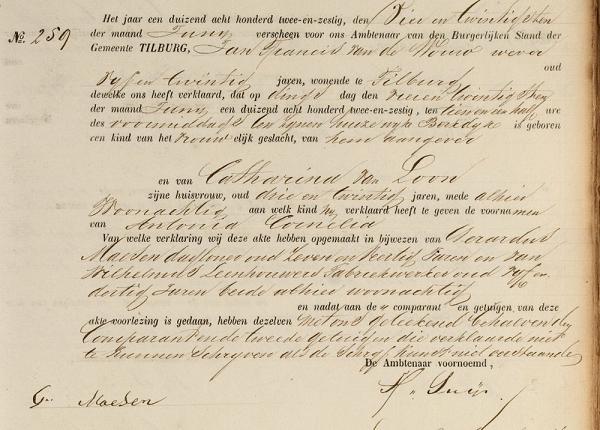 No. 259
Het jaar een duizend acht honderd twee-en-zestig, den Vier en Twintigsten
der maand Juny verscheen voor ons Ambtenaar van den Burgerlijken Stand der
Gemeente TILBURG, Jan Francis van de Wouw wever
oud
Vyf en twintig jaren, wonende te Tilburg
dewelke ons heeft verklaard, dat op dings dag den vieren twintigsten
der maand Juny een duizend acht honderd twee-en-zestig, ten tien en een half ure
des voormiddags ten zynen huize wyk Berkdyk is geboren
een kind van het vrouw elijk geslacht, van hem aangever
en van Catharina van Loon
zijne huisvrouw, oud drie en twintig jaren, mede alhier
Woonachtig, aan welk kind hy verklaard heeft te geven de voornamen
van Antonia Cornelia
Van welke verklaring wij deze akte hebben opgemaakt in bijwezen van Gerardus
Maesen daglooner oud Zeven en Veertig Jaren en van
Wilhelmus Leenhouwers Fabriekwerker oud Vyf en
dertig Jaren beide alhier woonachtig
en nadat aan de comparant en getuigen van deze
akte voorlezing is gedaan, hebben dezelven met ons geteekend behalven den
Comparant en de tweede getuigen die verklaarde niet
te kunnen Schryven als de Schryfkunst niet verstaande
De Ambtenaar voornoemd,
G. Maesen